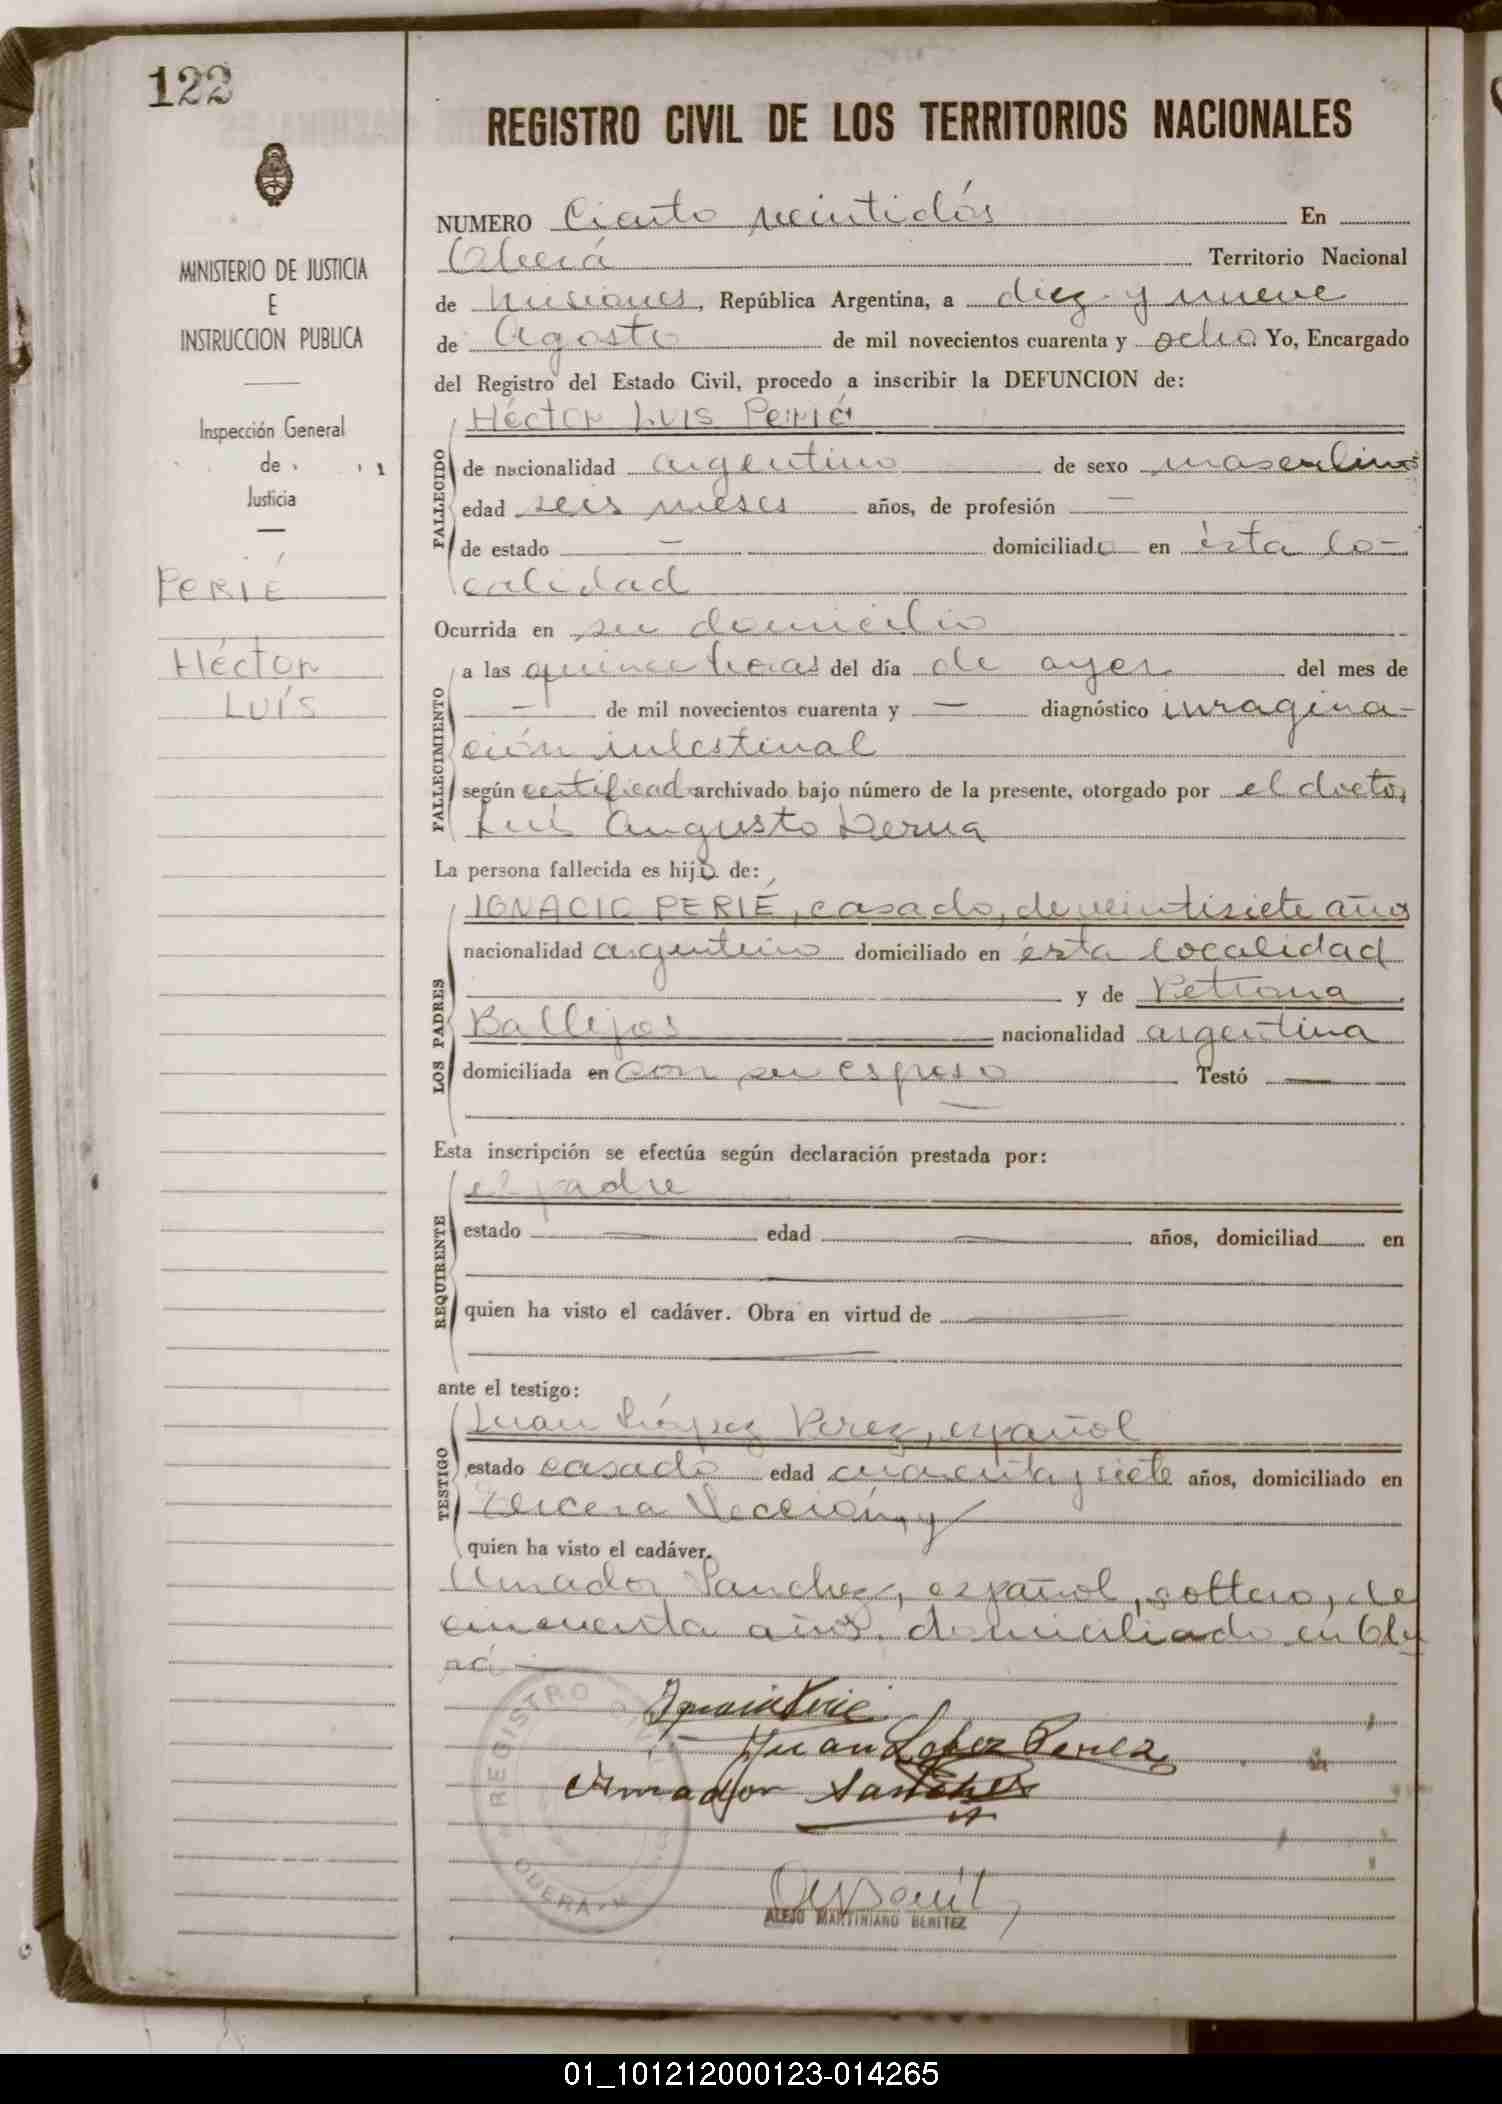 122
REGISTRO CIVIL DE LOS TERRITORIOS NACIONALES
MINISTERIO DE JUSTICIA
E
INSTRUCCION PUBLICA
Inspección General
de
Justicia
PERIÉ
Héctor
Luís
NUMERO Ciento veintidós En
Oberá Territorio Nacional
de Misiones, República Argentina, a diez y nueve
de Agosto de mil novecientos cuarenta y ocho. Yo, Encargado
del Registro del Estado Civil, procedo a inscribir la DEFUNCION de:
Héctor Luis Perié
FALLECIDO
de nacionalidad argentino de sexo masculino
edad seis meses años, de profesión —
de estado — domiciliado en ésta lo-
calidad
Ocurrida en su domicilio
FALLECIMIENTO
a las quince horas del día de ayer del mes de
— de mil novecientos cuarenta y — diagnóstico invagina-
ción intestinal
según certificad archivado bajo número de la presente, otorgado por el doctor
Luis Augusto Derna
La persona fallecida es hijo de:
LOS PADRES
IGNACIO PERIÉ, casado, de veintisiete años
nacionalidad argentino domiciliado en ésta localidad
y de Petrona
Ballejos nacionalidad argentina
domiciliada en con su esposo Testó —
Esta inscripción se efectúa según declaración prestada por:
REQUIRENTE
el padre
estado — edad — años, domiciliad en
quien ha visto el cadáver. Obra en virtud de —
ante el testigo:
TESTIGO
Juan López Perez, español
estado casado edad cuarenta y siete años, domiciliado en
Tercera Sección, y
quien ha visto el cadáver.
Amador Sanchez, español, soltero, de
cincuenta años, domiciliado en Obe
rá
Ignacio Perié
Juan Lopez Perez
Amador Sanchez
REGISTRO
OBERA
ALEJO MARTINIANO BENITEZ
01_101212000123-014265